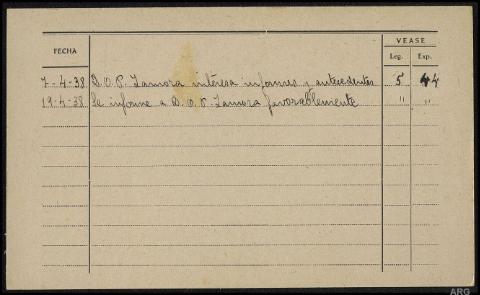 VEASE
FECHA Leg. Exp.
7-4-38 D.O.P. Zamora interesa informes y antecedentes 5 44
19-4-38 Se informe a D.O.P. Zamora favorablemente " "
ARG